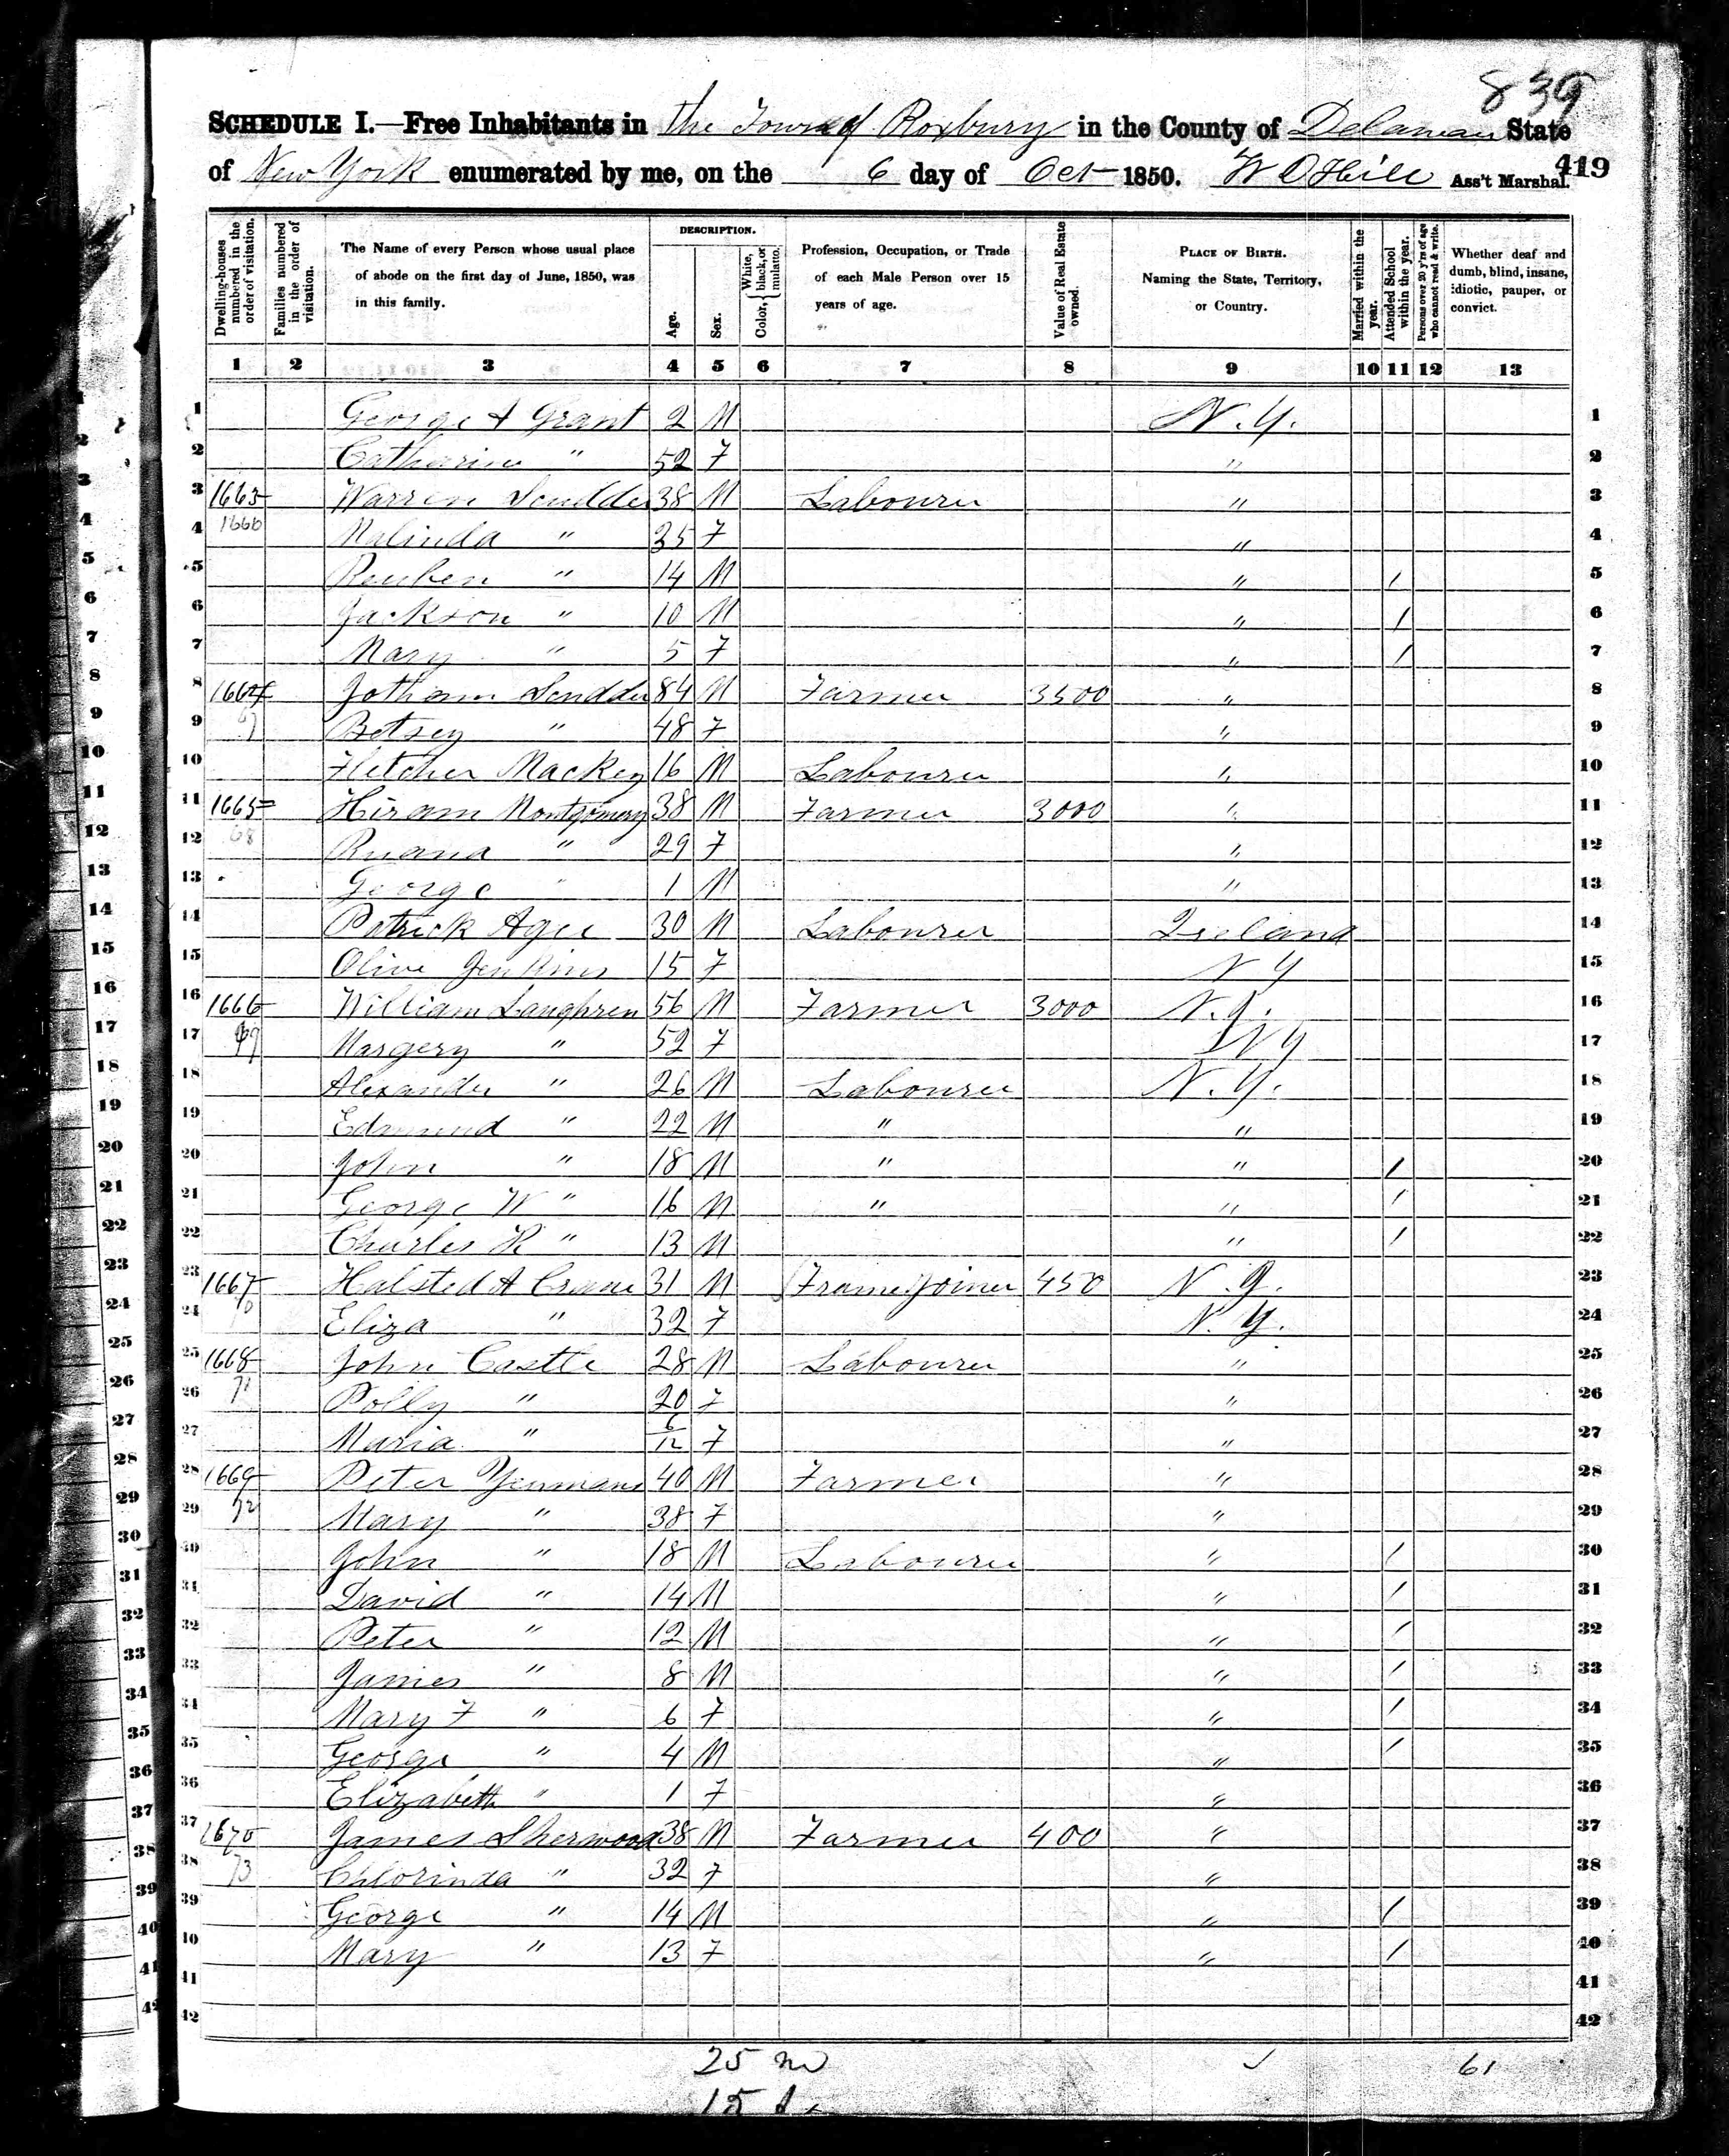 839
SCHEDULE I.—Free Inhabitants in the Town of Roxbury in the County of Delaware State
of New York enumerated by me, on the 6 day of Oct 1850. W O Hill Ass't Marshal. 419
Dwelling-houses numbered in the order of visitation.
Families numbered in the order of visitation.
The Name of every Person whose usual place of abode on the first day of June, 1850, was in this family.
DESCRIPTION.
Age.
Sex.
Color, { White, black, or mulatto.
Profession, Occupation, or Trade of each Male Person over 15 years of age.
Value of Real Estate owned.
PLACE OF BIRTH. Naming the State, Territory, or Country.
Married within the year.
Attended School within the year.
Persons over 20 y'rs of age who cannot read & write.
Whether deaf and dumb, blind, insane, idiotic, pauper, or convict.
1 2 3 4 5 6 7 8 9 10 11 12 13
1 George A Grant 2 M N.Y. 1
2 Catharine " 52 F " 2
3 1663 Warren Scudder 38 M Labourer " 3
4 1666 Malinda " 35 F " 4
5 Reuben " 14 M " / 5
6 Jackson " 10 M " / 6
7 Mary " 5 F " / 7
8 1664 Jotham Scudder 84 M Farmer 3500 " 8
9 67 Betsey " 48 F " 9
10 Fletcher Mackey 16 M Labourer " 10
11 1665 Hiram Montgomery 38 M Farmer 3000 " 11
12 68 Ruana " 29 F " 12
13 George " 1 M " 13
14 Patrick Agee 30 M Labourer Ireland 14
15 Olive Jenkins 15 F N Y 15
16 1666 William Laughren 56 M Farmer 3000 N.J. 16
17 69 Margery " 52 F N Y 17
18 Alexander " 26 M Labourer N.Y. 18
19 Edmund " 22 M " " 19
20 John " 18 M " " / 20
21 George W " 16 M " " / 21
22 Charles R " 13 M " / 22
23 1667 Halsted A Crane 31 M Frame Joiner 450 N.J. 23
24 70 Eliza " 32 F N.Y. 24
25 1668 John Castle 28 M Labourer " 25
26 71 Polly " 20 F " 26
27 Maria " 6/12 F " 27
28 1669 Peter Yeumans 40 M Farmer " 28
29 72 Mary " 38 F " 29
30 John " 18 M Labourer " / 30
31 David " 14 M " / 31
32 Peter " 12 M " / 32
33 James " 8 M " / 33
34 Mary F " 6 F " / 34
35 George " 4 M " / 35
36 Elizabeth " 1 F " 36
37 1670 James Sherwood 38 M Farmer 400 " 37
38 73 Chlorinda " 32 F " 38
39 George " 14 M " / 39
40 Mary " 13 F " / 40
41 41
42 42
25 m 61
15 f